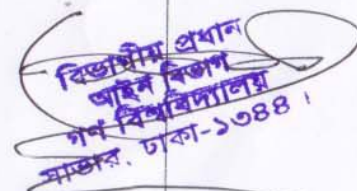 বিভাগীয় প্রধান
আইন বিভাগ
গণ বিশ্ববিদ্যালয়
সাভার, ঢাকা-১৩৪৪।